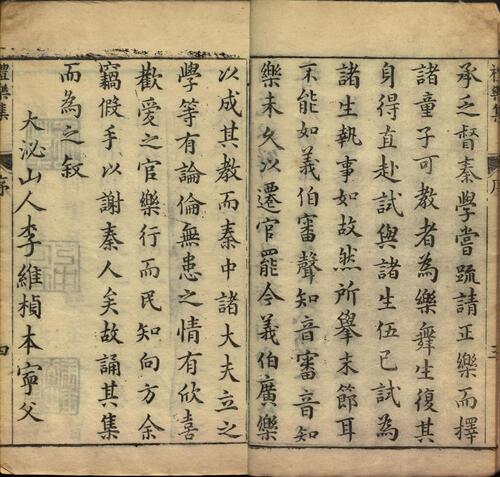 禮樂集 序 三
承乏督秦學嘗疏請正樂而擇
諸童子可教者為樂舞生復其
身得直赴試與諸生伍已試為
諸生執事如故然所舉末節耳
不能如義伯審聲知音審音知
樂未久以遷官罷今義伯廣樂
以成其教而秦中諸大夫立之
學等有論倫無患之情有欣喜
歡愛之官樂行而民知向方余
竊假手以謝秦人矣故誦其集
而為之敘
大泌山人李維楨本寧父
禮樂集 序 四